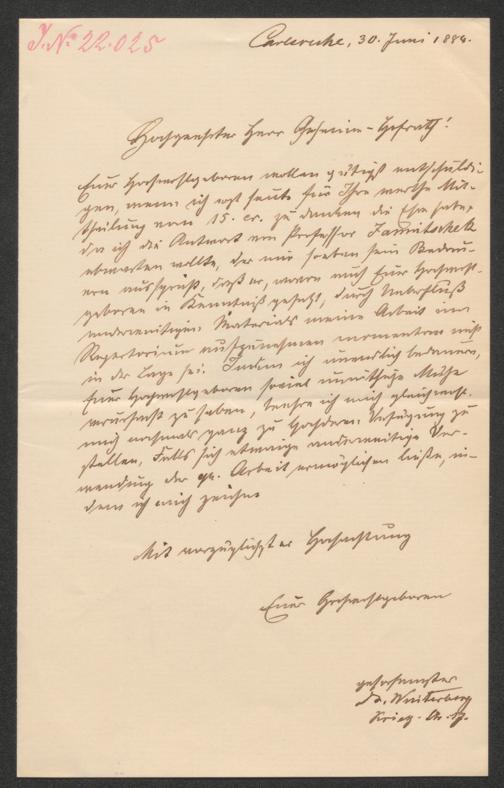 J. No 22.025
Carlsruhe, 30. Juni 188
Hochgeehrter Herr Geheim-Hofrath!
Euer Hochwohlgeboren wollen gütigst entschuldi-
gen, wenn ich erst heute für Ihre werthe Mit-
theilung vom 15. cr. zu danken die Ehre habe,
da ich die Antwort von Professor Janitschek
abwarten wollte, der mir soeben sein Bedau-
ern ausspricht, daß er, wovon auch Euer Hochwohl-
geboren in Kenntniß gesetzt, durch Ueberfluß
anderweitigen Materials meine Arbeit im
Repertorium aufzunehmen momentan nicht
in der Lage sei. Indem ich unendlich bedaure,
Euer Hochwohlgeboren soviel unnütze Mühe
verursacht zu haben, ich mich gleichwohl
mich nochmals ganz zu Verfügung zu
stellen, falls sich etwaige anderweitige Ver-
wendung der gen. Arbeit ermöglichen ließe, in-
dem ich mich zeichne
Mit vorzüglichster Hochachtung
Euer Hochwohlgeboren
gehorsamster
Dr. Winterberg